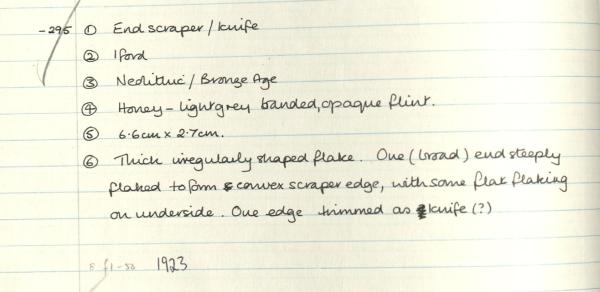 -295 ① End scraper / knife
② Iford
③ Neolithic / Bronze Age
④ Honey - lightgrey banded, opaque flint.
⑤ 6.6cm x 2.7cm.
⑥ Thick irregularly shaped flake. One (broad) end steeply
flaked to form convex scraper edge, with some flat flaking
on underside. One edge trimmed as knife (?)
1923